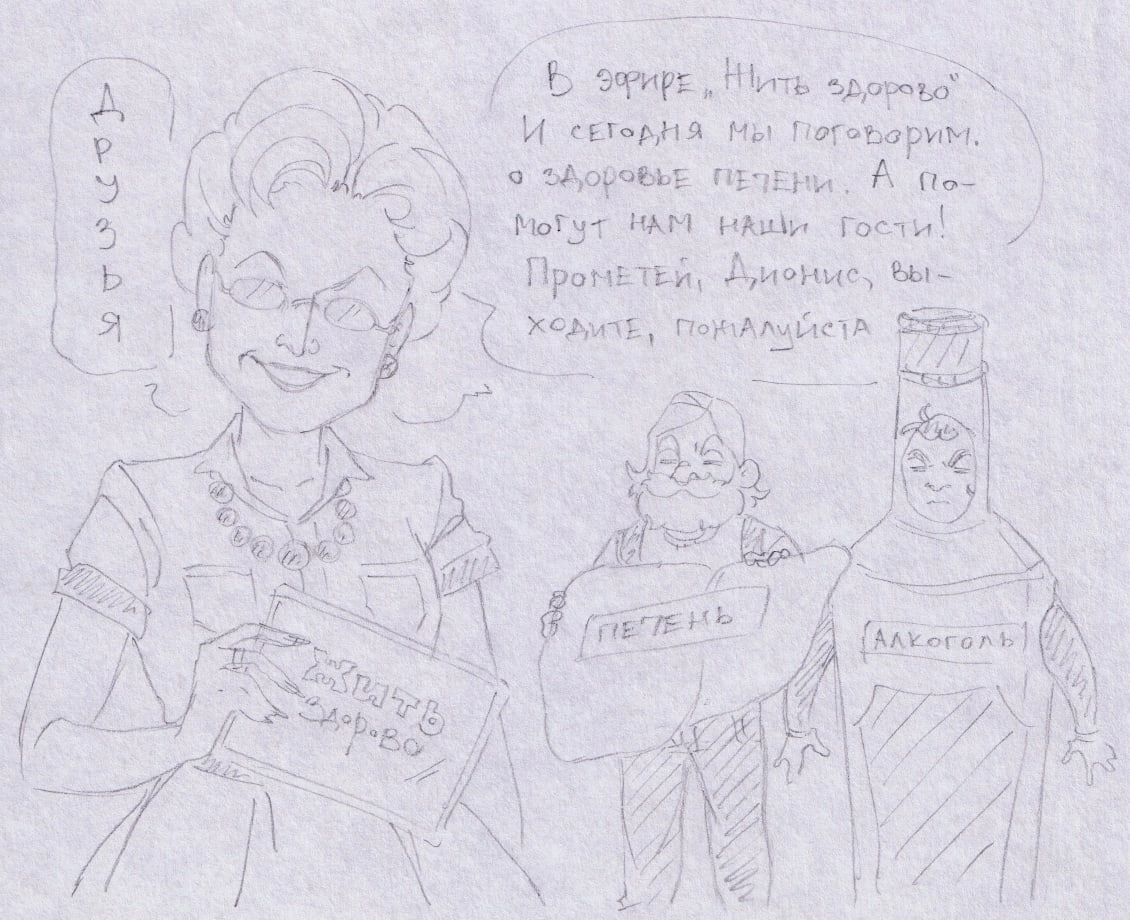 Друзья
В эфире „Жить здорово“
И сегодня мы поговорим.
о здоровье печени. А по-
могут нам наши гости!
Прометей, Дионис, вы-
ходите, пожалуйста
ПЕЧЕНЬ
АЛКОГОЛЬ
Жить
здорово